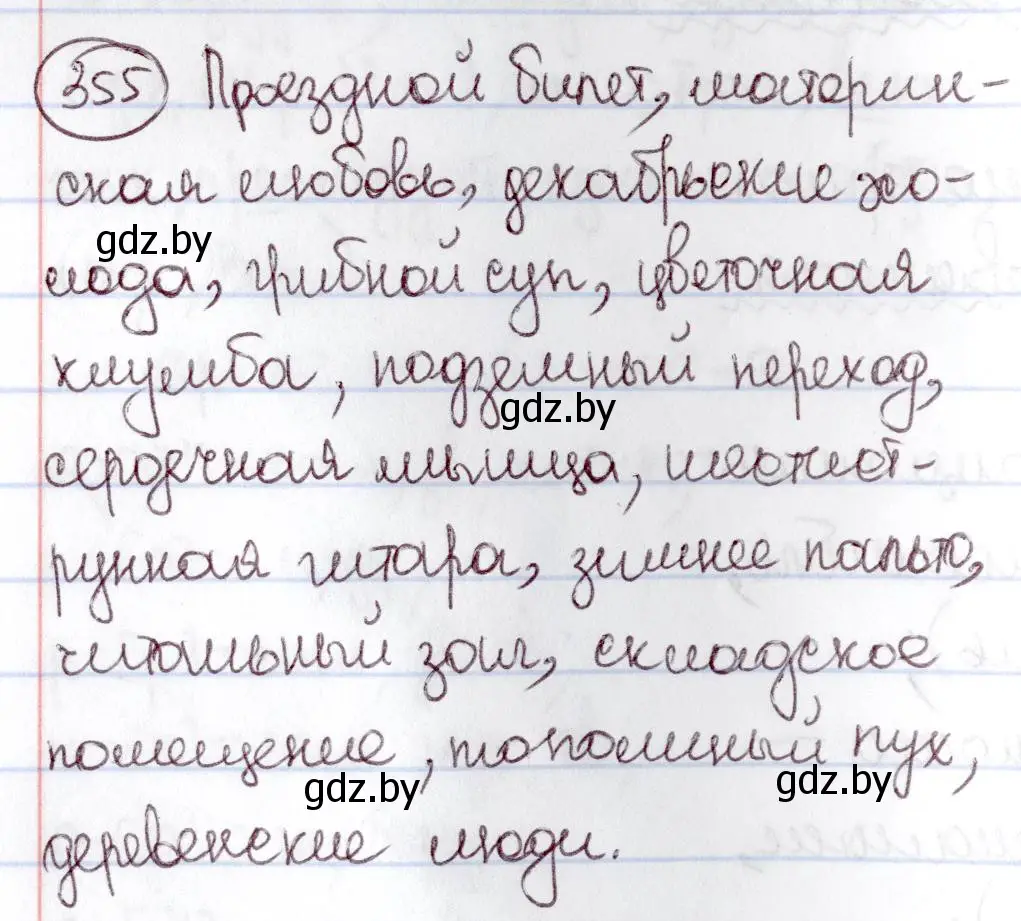 355 Проездной билет, материн-
ская любовь, декабрьские хо-
gdz.by
лода, грибной суп, цветочная
клумба, подземный переход,
gdz.by
сердечная мышца, шестист-
рунная гитара, зимнее пальто,
читальный зал, складское
помещение, тополиный пух,
gdz.by gdz.by
деревенские люди.